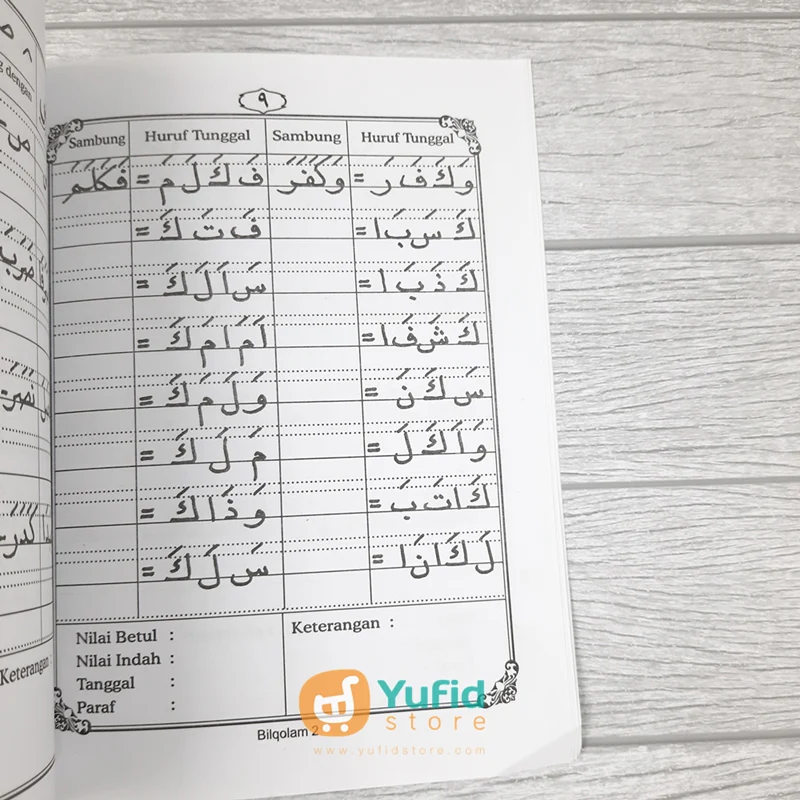 ٩
Sambung Huruf Tunggal Sambung Huruf Tunggal
وَ كَ فَ رَ = وَكَفَرَ فَ كَ لَ مَ = فَكَلَمَ
كَ سَ بَ ا = فَ تَ كَ =
كَ ذَ بَ ا = سَ اَ لَ كَ =
كَ شَ فَ ا = اَ مَ ا مَ كَ =
سَ كَ نَ = وَ لَ مَ كَ =
وَ اَ كَ لَ = مَ لَ كَ =
كَ ا تَ بَ = وَ ذَ ا كَ =
لَ كَ ا نَ ا = سَ لَ كَ =
Nilai Betul :
Nilai Indah :
Tanggal :
Paraf :
Keterangan :
Bilqolam 2
dengan
Keterangan :
Yufid
store
www.yufidstore.com